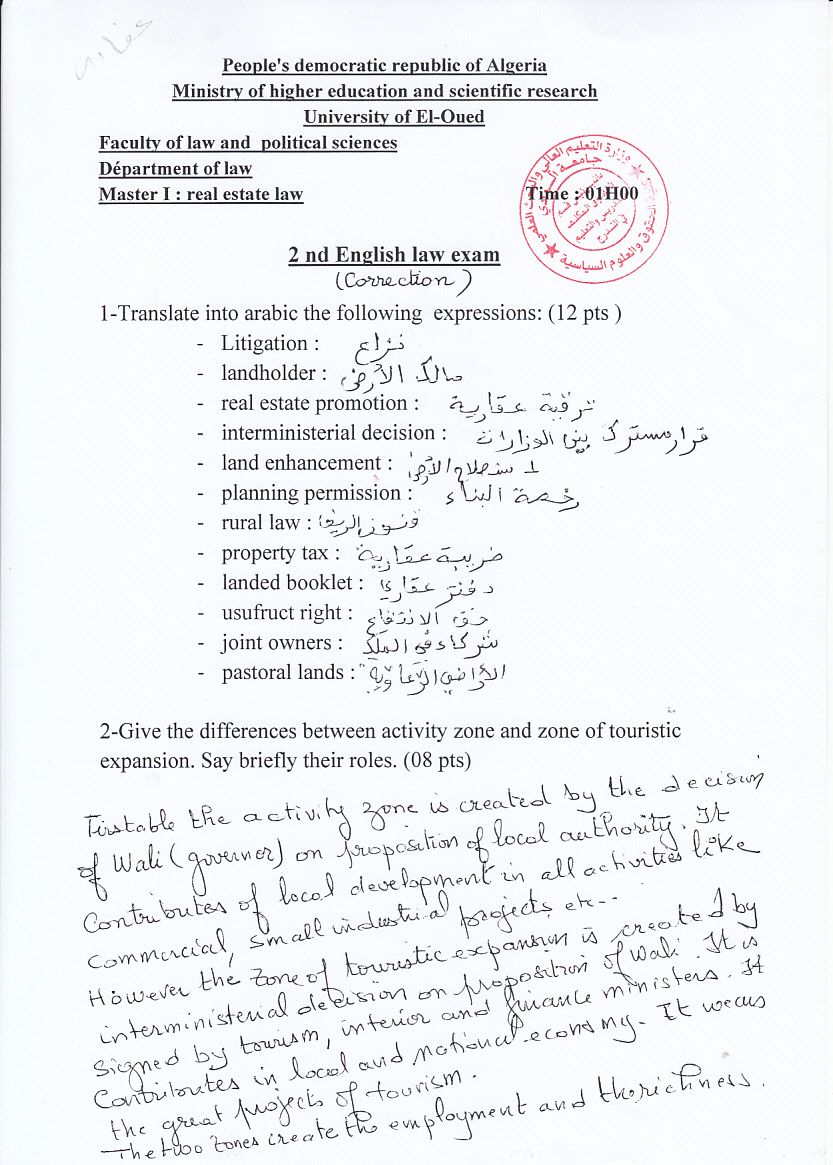 People's democratic republic of Algeria
Ministry of higher education and scientific research
University of El-Oued
Faculty of law and political sciences
Départment of law
Master I : real estate law Time : 01H00
وزارة التعليم العالي والبحث العلمي
الحقوق والعلوم السياسية
2 nd English law exam
(Correction)
1-Translate into arabic the following expressions: (12 pts )
- Litigation : نزاع
- landholder : مالك الأرض
- real estate promotion : ترقية عقارية
- interministerial decision : قرار مشترك بين الوزارات
- land enhancement : استصلاح الأرض
- planning permission : رخصة البناء
- rural law :
- property tax : ضريبة عقارية
- landed booklet : دفتر عقاري
- usufruct right : حق الانتفاع
- joint owners : شركاء في الملك
- pastoral lands : الأراضي الرعاوية
2-Give the differences between activity zone and zone of touristic
expansion. Say briefly their roles. (08 pts)
Firstable the activity zone is created by the decision
of Wali (governor) on proposition of local authority. It
Contributes of local development in all activities like
Commercial, small industrial projects etc--
However the zone of touristic expansion is created by
interministerial decision on proposition of Wali. It is
signed by tourism, interior and finance ministers. It
Contributes in local and national economy. It
the great projects of tourism.
The two zones create the employment and the richness.